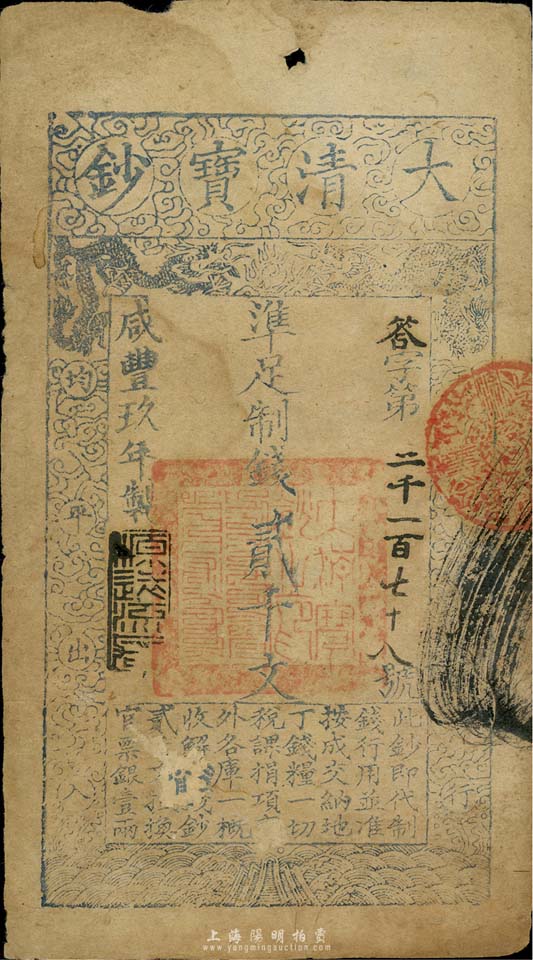 大清寶鈔
答字第二千一百七十八號
準足制錢貳千文
咸豐玖年製
均平出入
行
此鈔即代制
錢行用並准
按成交納地
丁錢糧一切
稅課捐項
外各庫一概
收解 鈔
貳 換
官票銀壹兩
上海陽明拍賣
www.yangmingauction.com